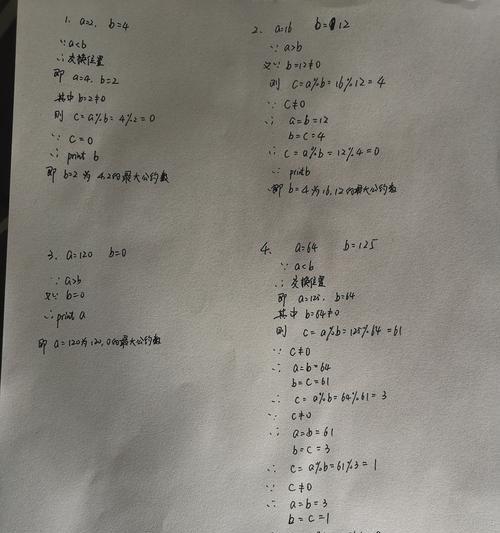 1. a=2, b=4
∵ a<b
∴ 交换位置
即 a=4, b=2
其中 b=2≠0
则 c=a%b=4%2=0
∵ c=0
∴ print b
即 b=2 为 4,2的最大公约数
2. a=16 b=12
∵ a>b
又∵ b=12≠0
则 c=a%b=16%12=4
∵ c≠0
∴ a=b=12
b=c=4
∴ c=a%b=12%4=0
∴ print b
即 b=4 为 16,12的最大公约数
3. a=120 b=0
∵ a>b
又∵ b=0
∴ print a
即 a=120为120,0的最大公约数
4. a=64 b=125
∵ a<b
∴ 交换位置
即 a=125, b=64
其中 b=64≠0
则 c=a%b=125%64=61
∵ c≠0
∴ a=b=64
b=c=61
∴ c=a%b=64%61=3
∵ c≠0
∴ a=b=61
b=c=3
∴ c=a%b=61%3=1
∵ c≠0
∴ a=b=3
b=c=1